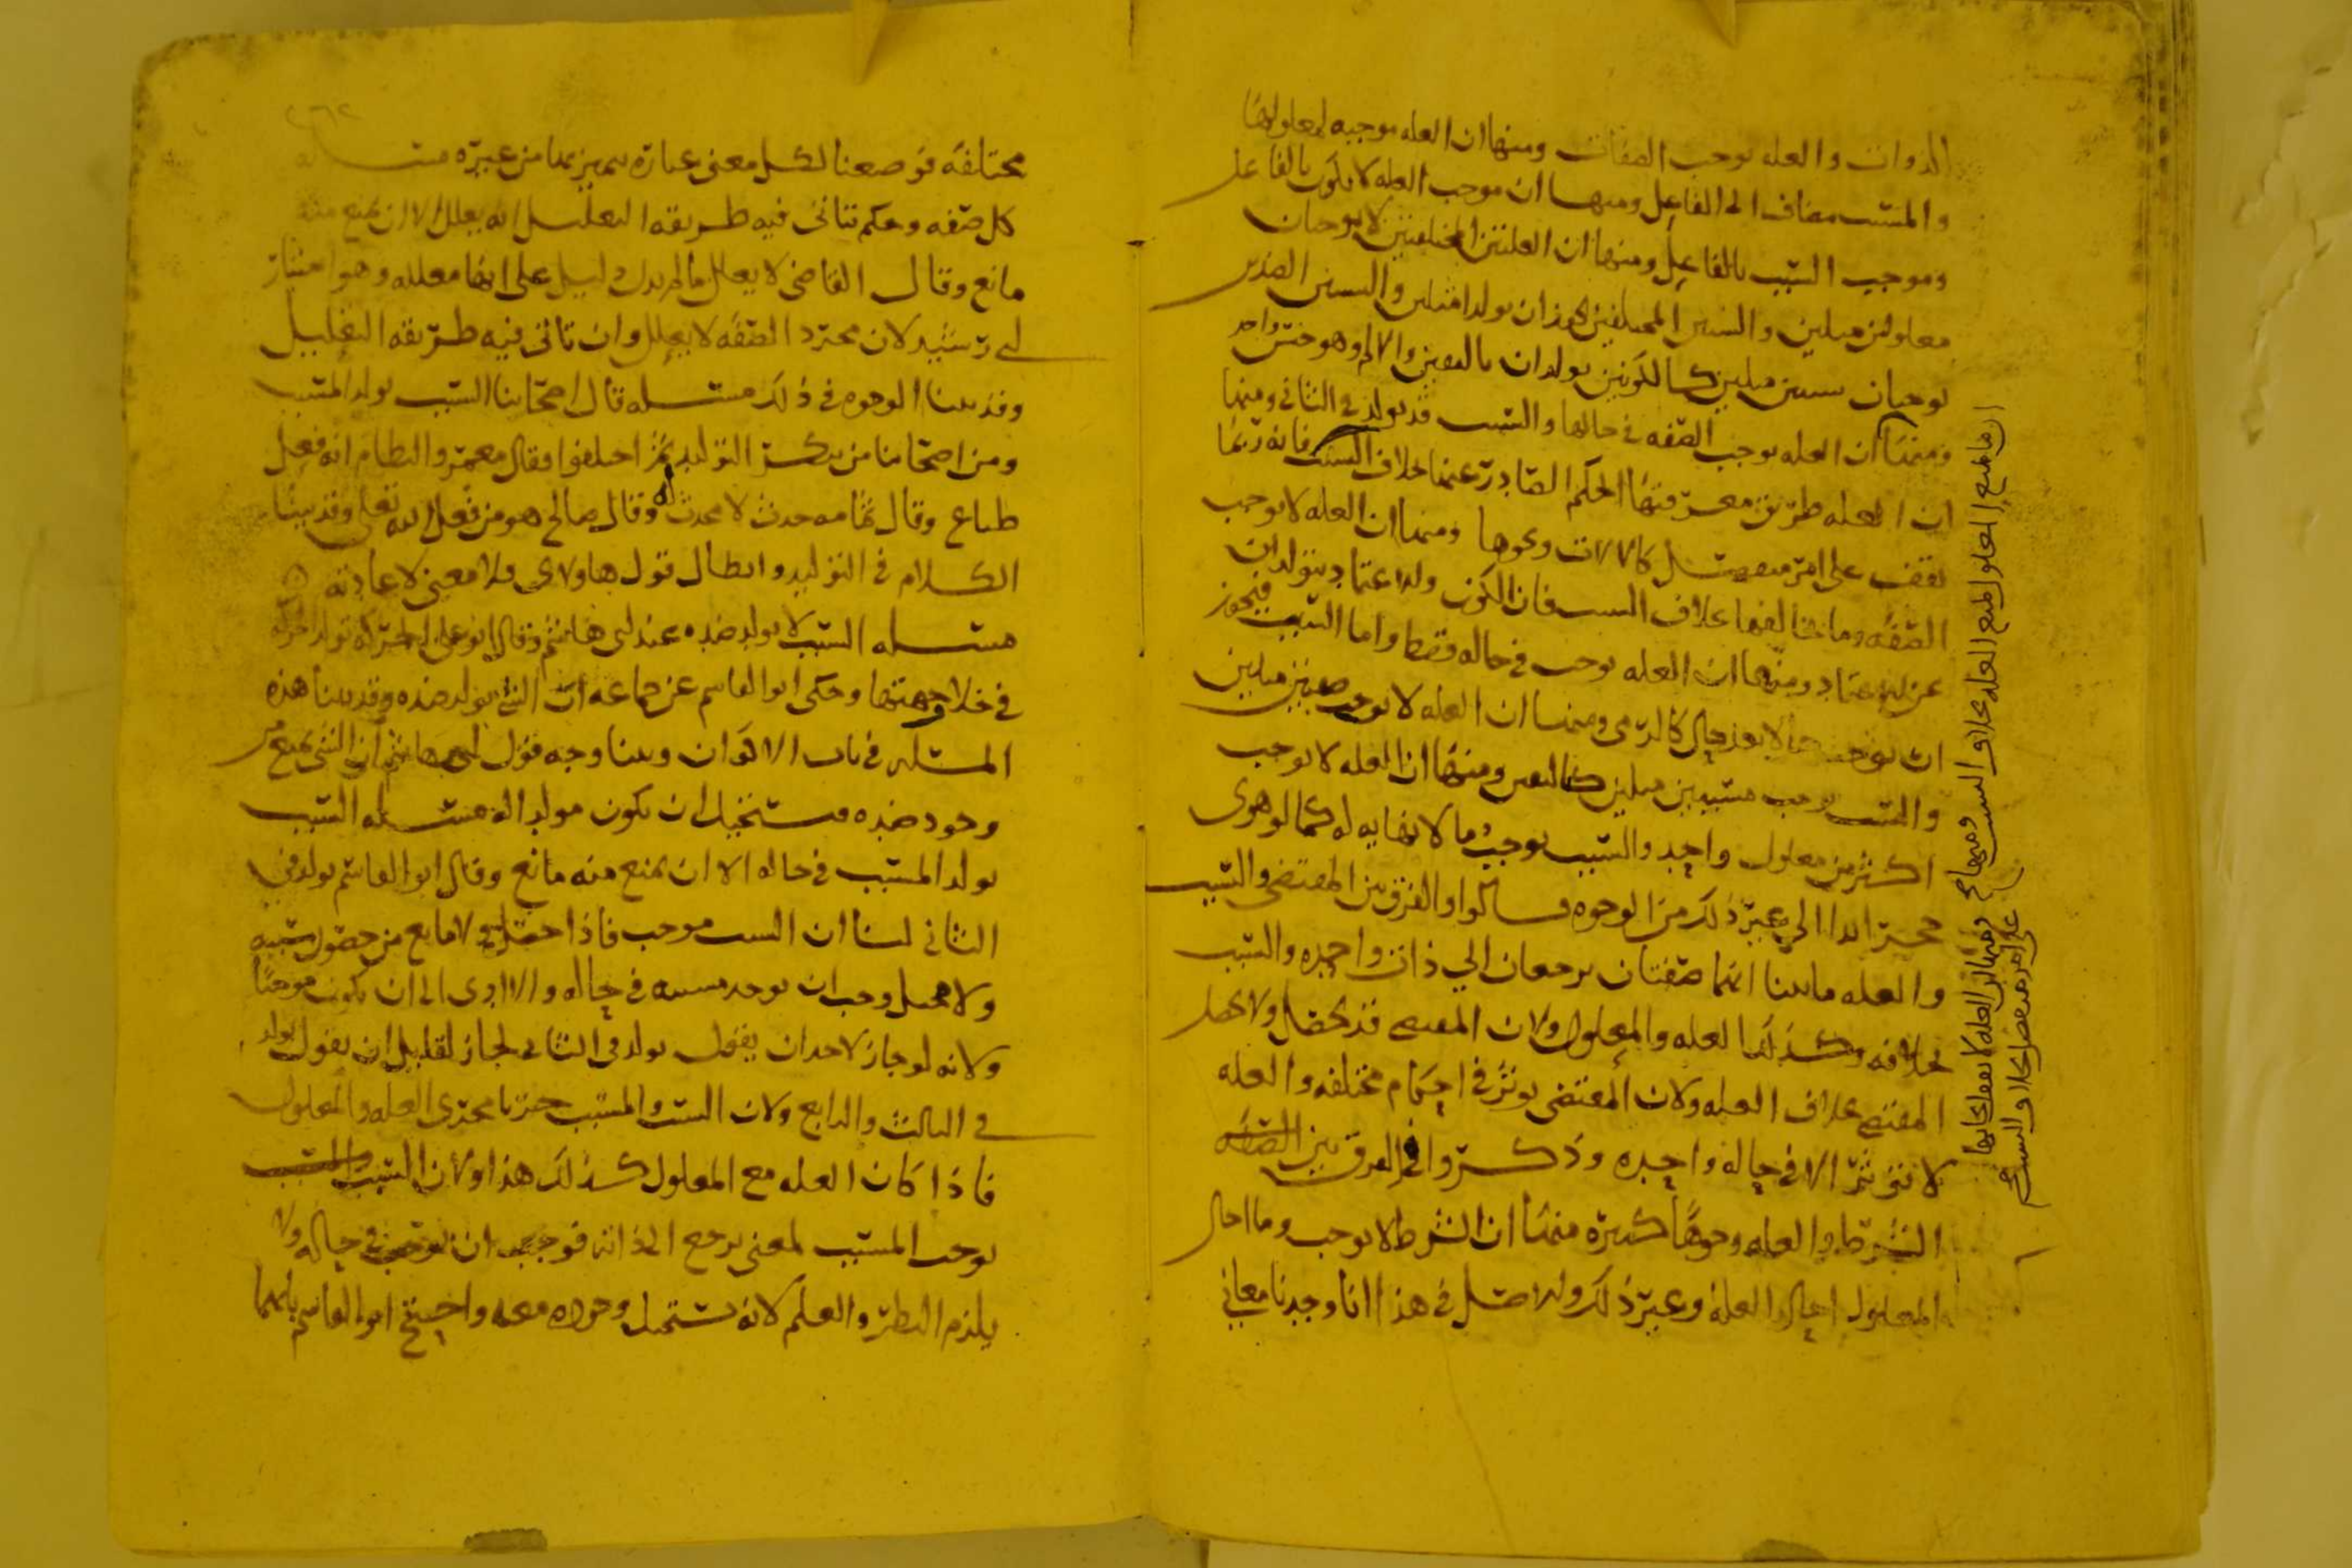 الذوات والعله توجب الصفات ومنها ان العله موجبه لمعلولها
والمسبب مضاف الى الفاعل ومنها ان موجب العله لا يكون بالفاعل
وموجب السبب بالفاعل ومنها ان العلتين المختلفتين لا يوجبان
معلولين مثلين والسببين المختلفين يجوز ان يولدا مثلين والسببين الضدين
يوجبان مسببين مثلين كالكونين يولدان التاليفين والالم وهو جنس واحد
ومنها ان العله توجب الصفه في حالها والسبب قد يولد في الثاني ومنها
ان العله طريق معرفتها الحكم الصادر عنها بخلاف السبب فانه ربما
يقف على امر منفصل كالالات ونحوها ومنها ان العله لا توجب
الصفه وما يخالفها بخلاف السبب فان الكون والاعتماد يتولدان
عن الاعتماد ومنها ان العله توجب في حاله فقط واما السبب فيجوز
ان يوجب حالا بعد حال كالرمي ومنها ان العله لا توجب صفتين مثلين
والسبب يوجب مسببين مثلين ومنها ان العله لا توجب
اكثر من معلول واحد والسبب يوجب ما لا نهايه له كما لو هوى
حجر ابدا الى غير ذلك من الوجوه قالوا والفرق بين المقتضي والسبب
والعله ما بينا انهما صفتان يرجعان الى ذات واحده والسبب
بخلافه وكذلك العله والمعلول ولان المقتضي قد يحصل ولا يحصل
المقتضى بخلاف العله ولان المقتضي يوثر في احكام مختلفه والعله
لا توثر الا في حاله واحده وذكروا في الفرق بين الصفه
الشرط والعله وجوها كثيره منها ان الشرط لا يوجب وما احال
المعلول احال العله وغير ذلك والاصل في هذا انا وجدنا معاني
ان ما منع المعلول منع العله بخلاف السبب ومنها
ومنها ان العله لا يقف ايجابها
على امر منفصل بخلاف السبب
٢٦٢
مختلفه فوضعنا لكل معنى عباره يتميز بها من غيره مسـله
كل صفه وحكم تتاتى فيه طريقه التعليل انه يعلل الا ان يمنع منه
مانع وقال القاضي لا يعلل ما لم يدل دليل على انها معلله وهو اختيار
ابي رشيد لان مجرد الصفه لا يعلل وان تاتى فيه طريقه التعليل
وقد بينا الوجوه في ذلك مسله قال اصحابنا السبب يولد المسبب
ومن اصحابنا من ينكر التوليد ثم اختلفوا فقال معمر والنظام انه فعل
طباع وقال ثمامه حدث لا محدث له وقال صالح هو من فعل الله تعلى وقد بينا
الكلام في التوليد وابطال قول هاولاي فلا معنى لاعادته
مسله السبب لا يولد ضده عند ابي هاشم وقال ابو علي الحركه تولد الحركه
في خلاف جهتها وحكى ابو القاسم عن جماعه ان الشي يولد ضده وقد بينا هذه
المسله في باب الاكوان وبينا وجه قول ابي هاشم ان الشي يمنع من
وجود ضده فيستحيل ان يكون مولدا له مسله السبب
يولد المسبب في حاله الا ان يمنع منه مانع وقال ابو القاسم يولد في
الثاني لنا ان السبب موجب فاذا حصل ولا مانع من حصول مسببه
ولا محيل وجب ان يوجد مسببه في حاله والا ادى الى ان يكون موجبا
ولانه لو جاز لاحد ان يقول يولد في الثاني لجاز لقايل ان يقول يولد
في الثالث والرابع ولان السبب والمسبب جريا مجرى العله والمعلول
فاذا كان العله مع المعلول كذلك هذا ولان السبب والمسبب
يوجب المسبب لمعنى يرجع الى ذاته فوجب ان يوجب في حاله ولا
يلزم النظر والعلم لانه يستحيل وجوده معه واحتج ابو القاسم بانهما